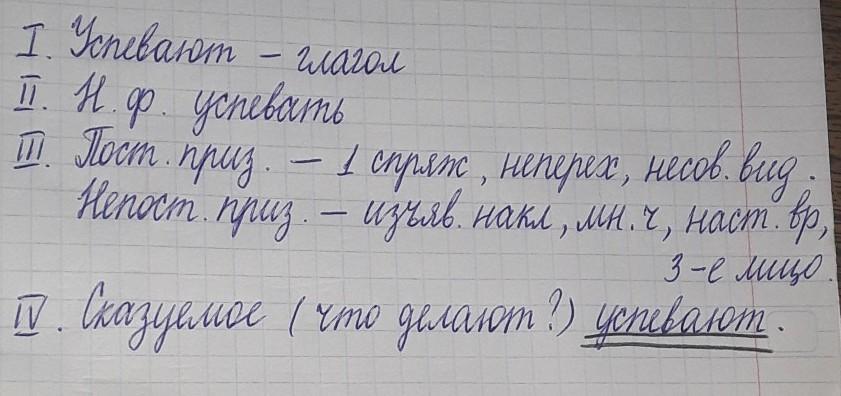 I. Успевают – глагол
II. Н. ф. успевать
III. Пост. приз. – 1 спряж, неперех, несов. вид.
Непост. приз. – изъяв. накл, мн. ч, наст. вр,
3-е лицо.
IV. Сказуемое (что делают?) успевают.